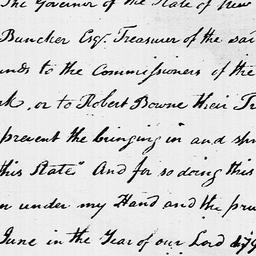 The Governor of the State of New
Buncker Esqr. Treasurer of the sai
unds to the Commissioners of the
rk, or to Robert Bowne their Tr
prevent the bringing in and spr
this State" And for so doing this
n under my Hand and the priv
June in the Year of our Lord 179